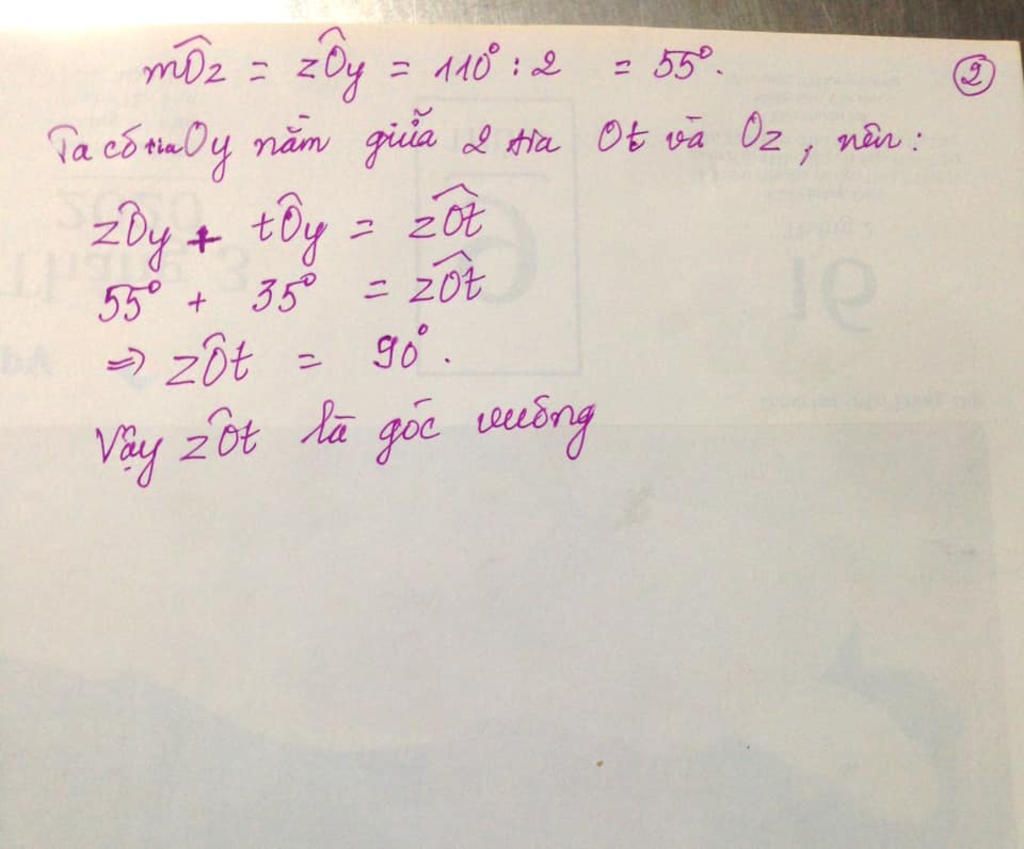 mÔz = zÔy = 110° : 2 = 55°.
②
Ta có tia Oy nằm giữa 2 tia Ot và Oz, nên:
zÔy + tÔy = zÔt
55° + 35° = zÔt
=> zÔt = 90°.
Vậy zÔt là góc vuông